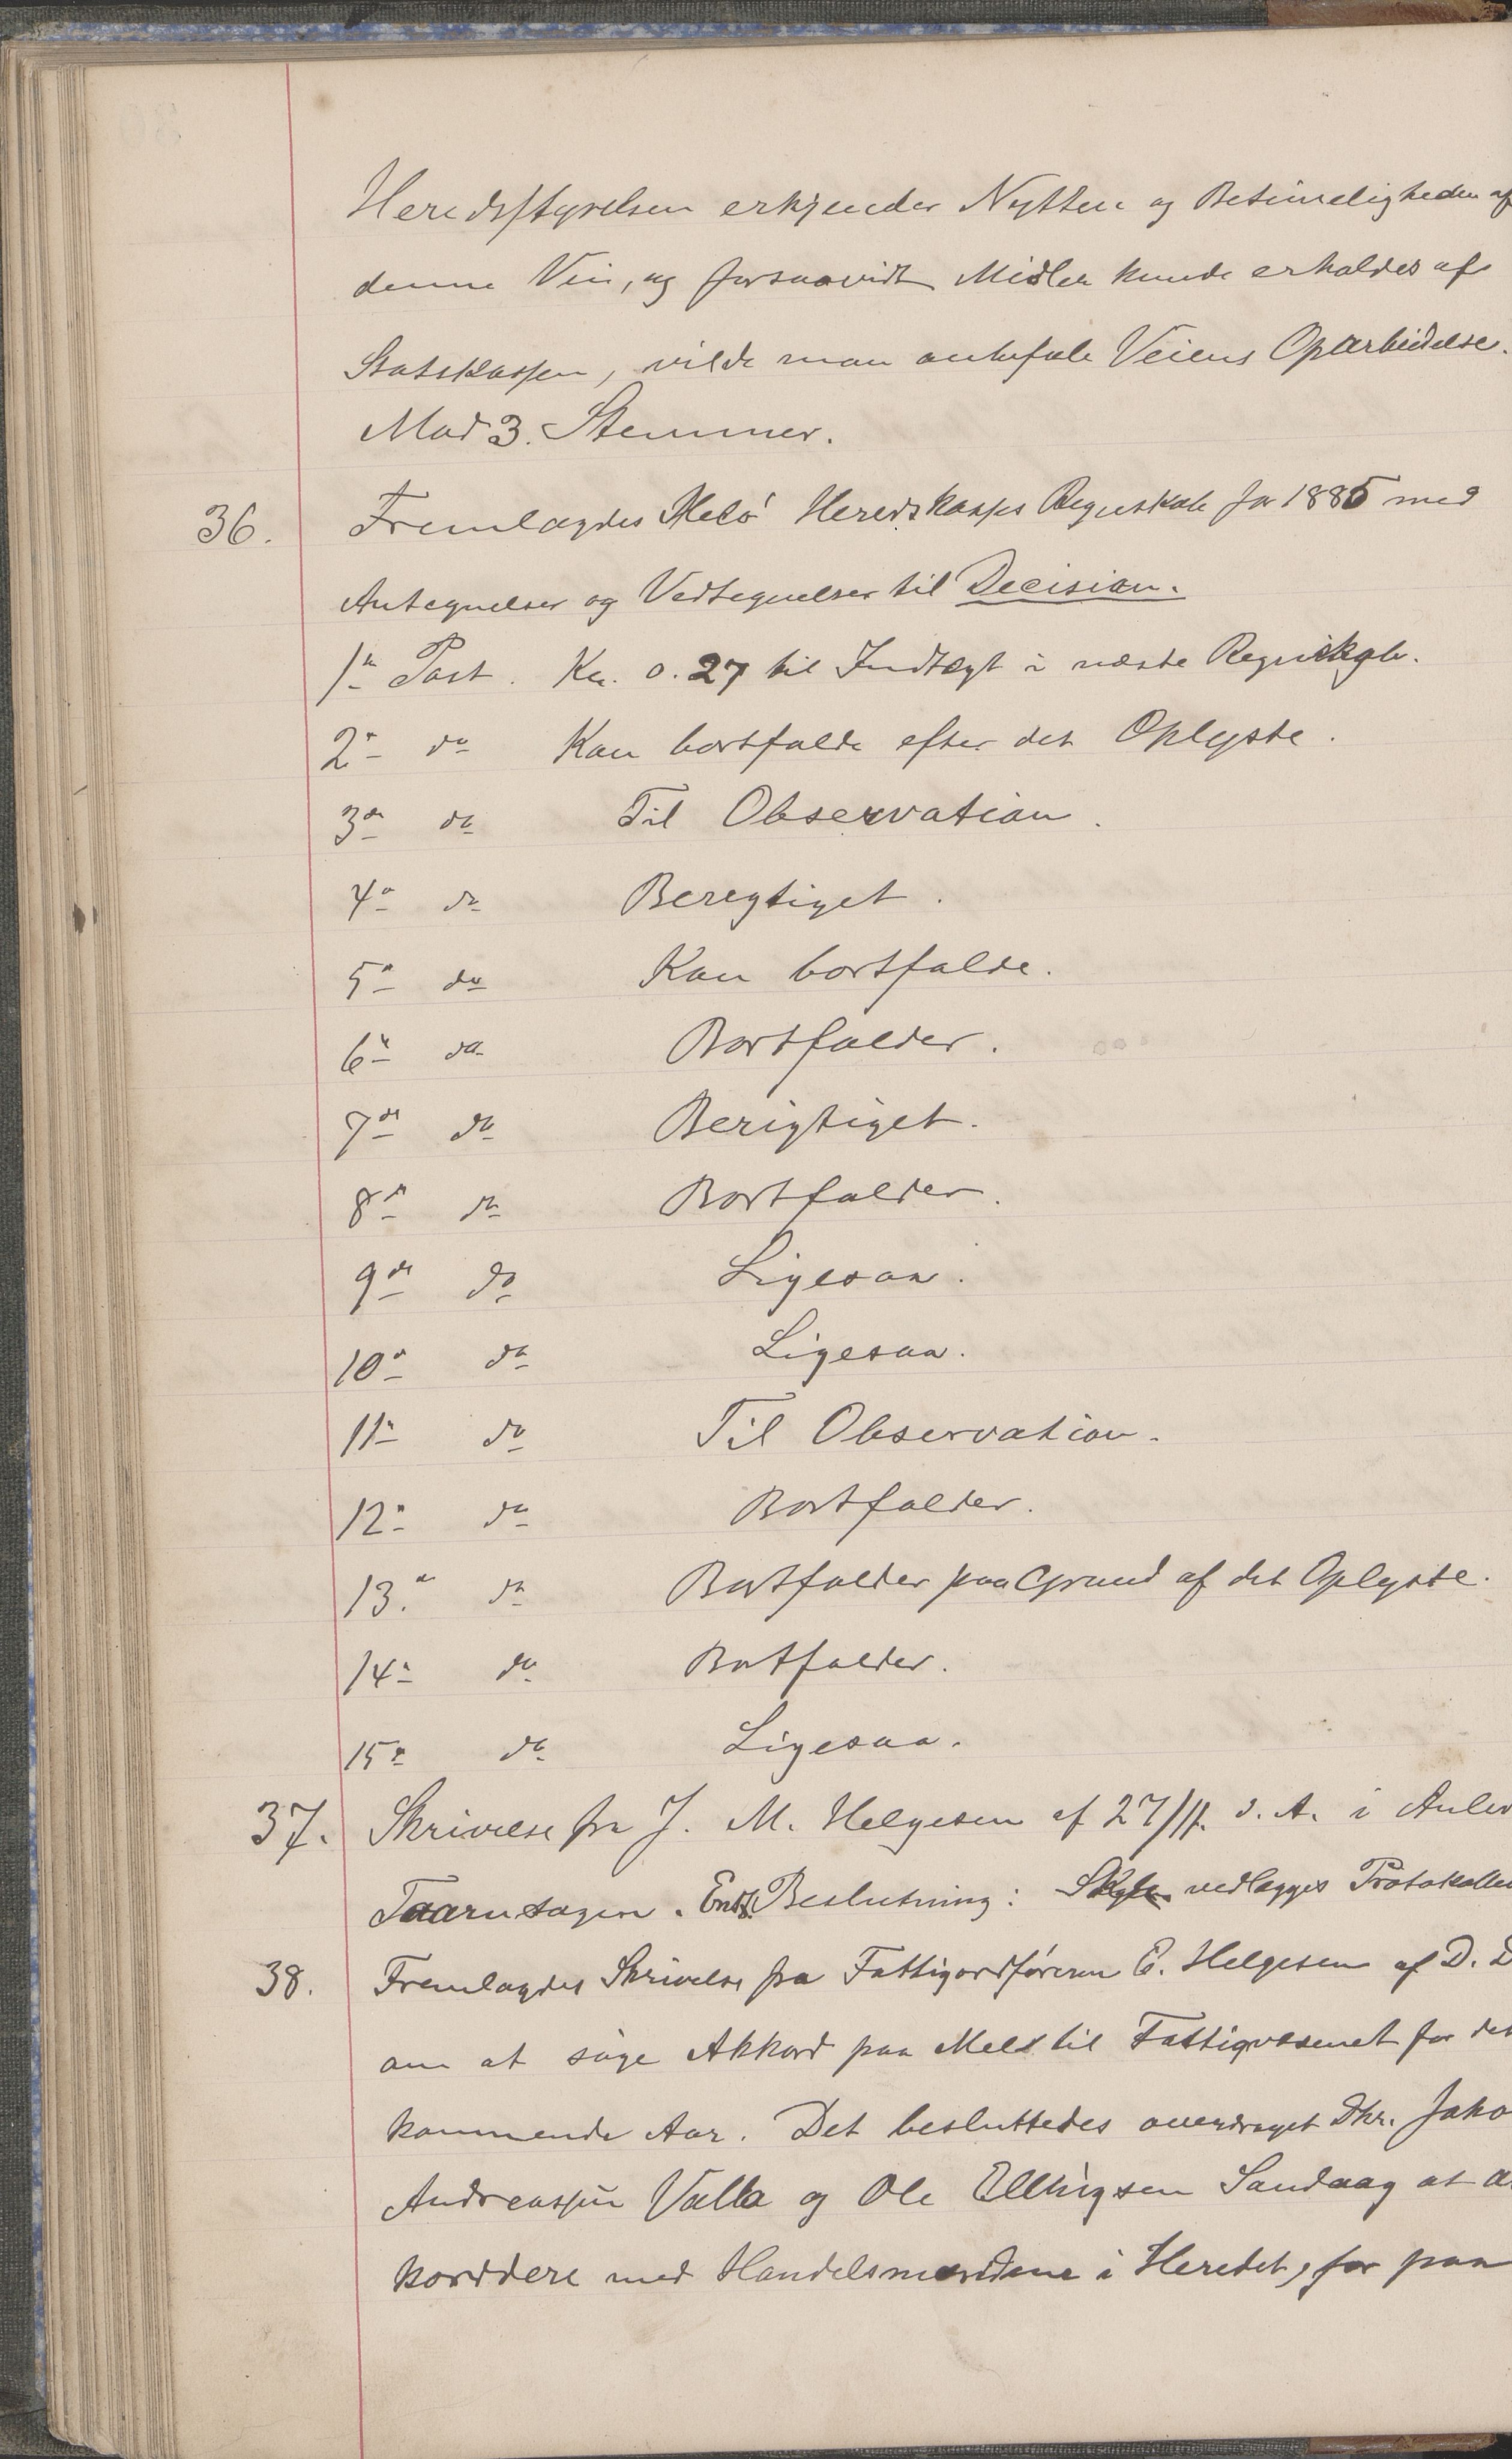 Heredsstyrelsen erkjender Nytten og Betimeligheden af
denne Vei, og forsaavidt Midler kunde erholdes af
Statskassen, vilde man anbefale Veiens Oparbeidelse.
Mod 3. Stemmer.
36. Fremlagdes Melø Heredskasses Regnskab for 1885 med
Antegnelser og Vedtegnelser til Decision.
1ste Post. Kr. 0.27 til Indtægt i næste Regnskab.
2n do Kan bortfalde efter det Oplyste.
3die do Til Observation.
4de do Beregtiget.
5te do Kan bortfalde.
6te do Bortfalder.
7de do Berigtiget.
8de do Bortfalder.
9de do Ligesaa.
10de do Ligesaa.
11te do Til Observation.
12te do Bortfalder.
13.de do Bortfalder paa Grund af det Oplyste.
14de do Bortfalder.
15de do Ligesaa.
37. Skrivelse fra J. M. Helgesen af 27/11. d. A. i Anled
Taarnsagen. Beslutning: vedlægges Protokollen
38. Fremlagdes Skrivelse fra Fattigordføreren E. Helgesen af D. D
om at søge Akkord paa Mel til Fattigvæsenet for det
kommende Aar. Det besluttedes overdraget Dhr. Jako
Andreassen Valla og Ole Ellingsen Sandaag at a
korddere med Handelsmændene i Heredet, for paa